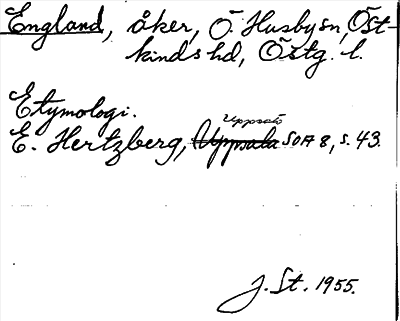 England, åker, Ö. Husbysn, Öst-
kinds hd, Östg. l.
Etymologi.
Uppsats
E. Hertzberg, Uppsala SOÄ 8, s. 43.
J. St. 1955.